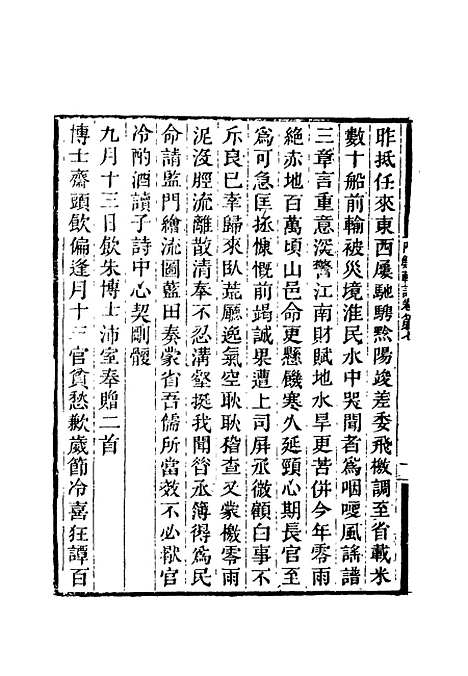 昨抵任來東西屢馳騁黟陽竣差委飛檄調至省載米
數十船前輸被災境淮民水中哭聞者爲咽哽風謠譜
三章言重意深警江南財賦地水旱更苦併今年零雨
絶赤地百萬頃山邑命更懸饑寒久延頸心期長官至
爲可急匡拯慷慨前竭誠果遭上司屏丞微顧白事不
斥良已幸歸來臥荒廳逸氣空耿耿稽查又蒙檄零雨
泥没脛流離散清奉不忍溝壑挺我聞咎丞簿得爲民
命請監門繪流圖藍田奏蒙省吾儒所當效不必猒官
冷酌酒讀子詩中心契剛髏
九月十三日飲朱博士沛室奉贈二首
博士齋頭飲偏逢月十三官貧愁歉歲節冷喜狂譚百